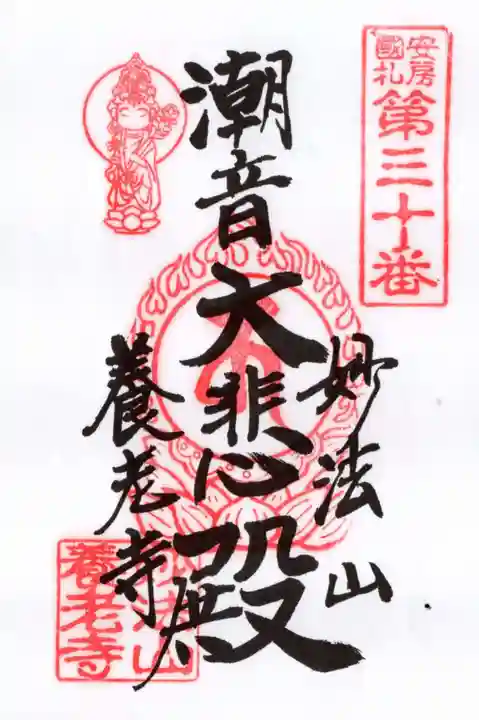 安房
國札
第三十番
妙法山
潮音
大悲殿
養老寺
妙法山
養老寺